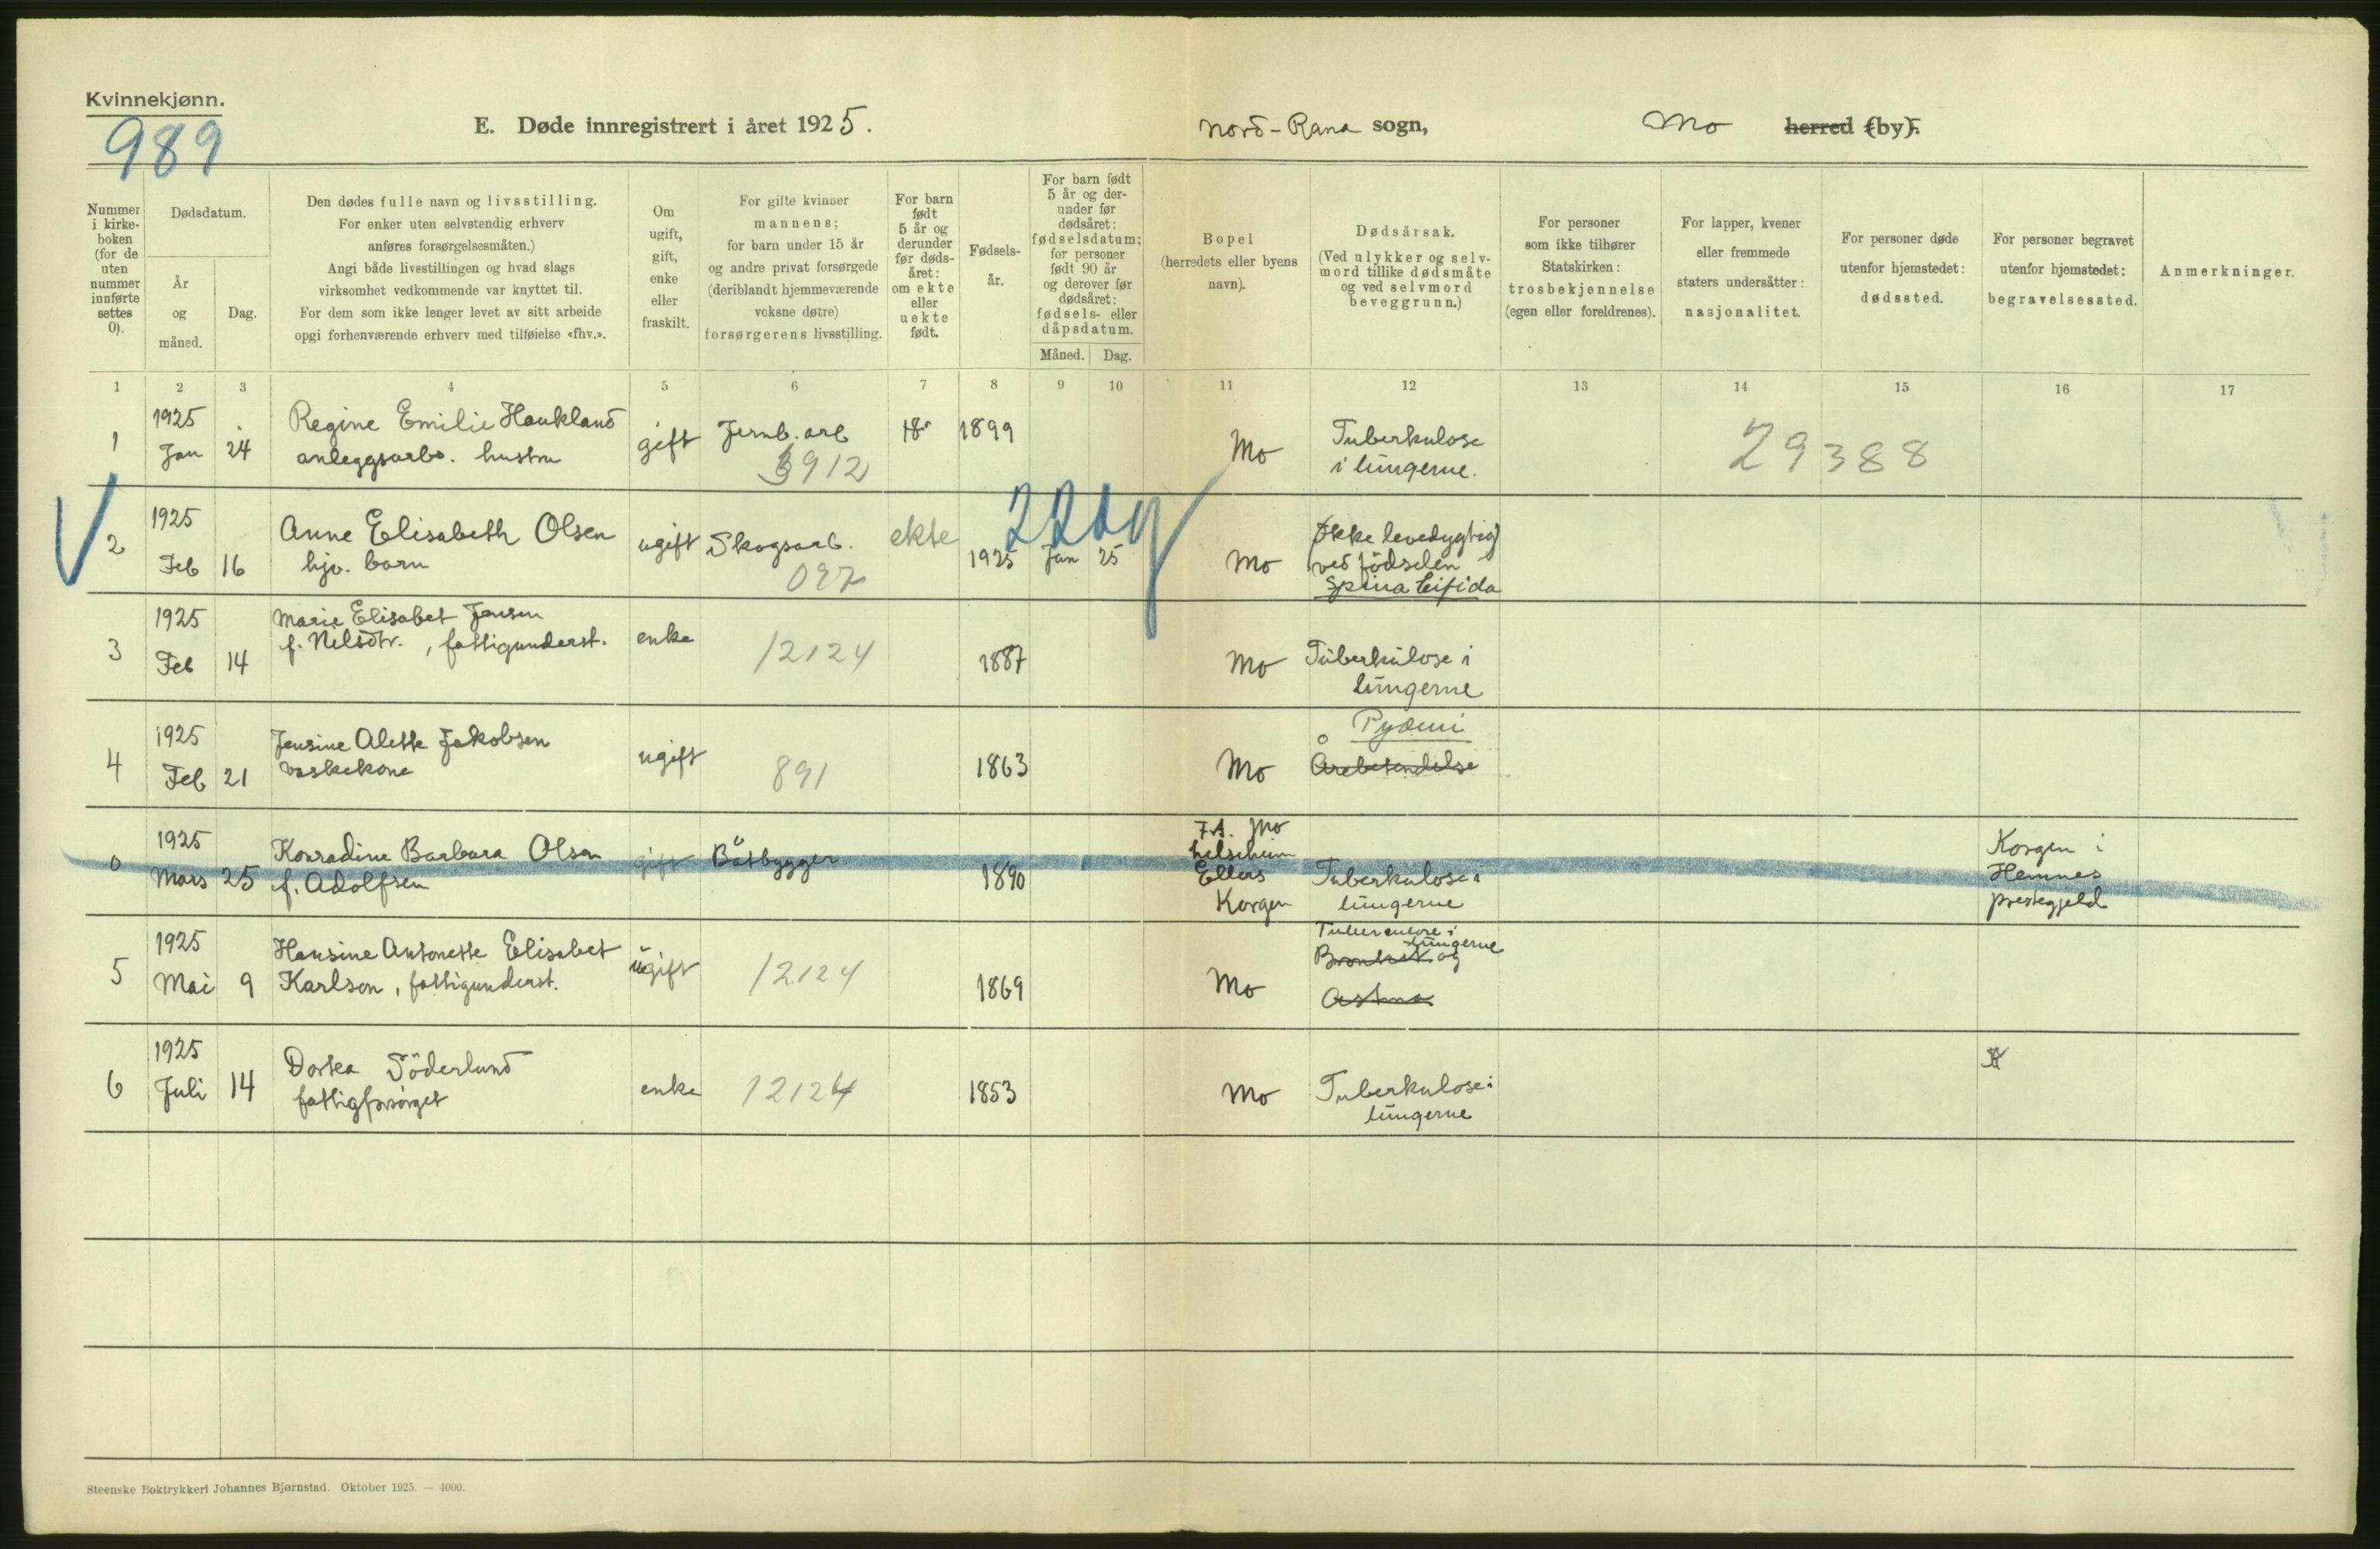 Kvinnekjønn.
989
E. Døde innregistrert i året 1925.
Nord-Rana sogn,
Mo herred (by).
Nummer i kirke- boken (for de uten nummer innførte settes 0).
Dødsdatum.
År og måned.
Dag.
Den dødes fulle navn og livsstilling.
For enker uten selvstendig erhverv
anføres forsørgelsesmåten.)
Angi både livsstillingen og hvad slags
virksomhet vedkommende var knyttet til.
For dem som ikke lenger levet av sitt arbeide
opgi forhenværende erhverv med tilføielse «fhv.».
Om
ugift,
gift,
enke
eller
fraskilt.
For gifte kvinner
mannens;
for barn under 15 år
og andre privat forsørgede
(deriblandt hjemmeværende
voksne døtre)
forsørgerens livsstilling.
For barn
født
5 år og
derunder
før døds-
året:
om ekte
eller
uekte
født.
Fødsels-
år.
For barn født
5 år og der-
under før
dødsåret:
fødselsdatum;
for personer
født 90 år
og derover før
dødsåret:
fødsels- eller
dåpsdatum.
Måned. Dag.
Bopel
(herredets eller byens
navn).
Dødsårsak.
(Ved ulykker og selv-
mord tillike dødsmåte
og ved selvmord
beveggrunn.)
For personer
som ikke tilhører
Statskirken:
trosbekjennelse
(egen eller foreldrenes).
For lapper, kvener
eller fremmede
staters undersåtter:
nasjonalitet.
For personer døde
utenfor hjemstedet:
dødssted.
For personer begravet
utenfor hjemstedet:
begravelsessted.
Anmerkninger.
1 2 3 4 5 6 7 8 9 10 11 12 13 14 15 16 17
1 1925 Jan 24
Regine Emilie Haukland
anleggsarb. hustru
gift
Jernb. arb
3912
18
1899
Mo
Tuberkulose
i lungerne.
29388
2 1925 Feb 16
Anne Elisabeth Olsen
hjv. barn
ugift
Skogsarb.
097
ekte
22 dg
1925 Jan 25
Mo
Ikke levedygtig
ved fødselen
Spina bifida
3 1925 Feb 14
Marie Elisabet Jensen
f. Nilsdtr., fattigunderst.
enke
12124
1887
Mo
Tuberkulose i
lungerne
4 1925 Feb 21
Jensine Alette Jakobsen
vaskekone
ugift
891
1863
Mo
Pyæmi
Årebetendelse
0 1925 Mars 25
Konradine Barbara Olsen
f. Adolfsen
gift
Båtbygger
1890
Mo
helseheim
Ellers
Korgen
Tuberkulose i
lungerne
Korgen i
Hemnes
prestegjeld
5 1925 Mai 9
Hansine Antonette Elisabet
Karlsen, fattigunderst.
ugift
12124
1869
Mo
Tuberculose i
lungerne
og
Astma
6 1925 Juli 14
Dortea Söderlund
fattigforsørget
enke
12124
1853
Mo
Tuberkulose i
lungerne
Steenske Boktrykkeri Johannes Bjørnstad. Oktober 1925. — 4000.